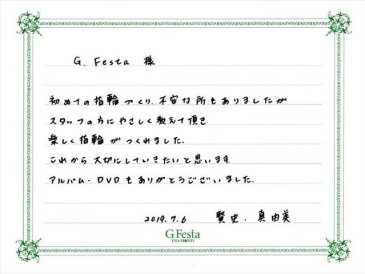 G. Festa 様
初めての指輪づくり、不安な所もありましたが
スタッフの方にやさしく教えて頂き
楽しく指輪がつくれました。
これから大切にしていきたいと思います
アルバム・DVDもありがとうございました。
2019.7.6 賢史・真由美
G.Festa
DIAMOND